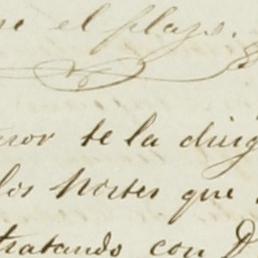 el plazo.
te la dirig
los Nortes que
tratando con D